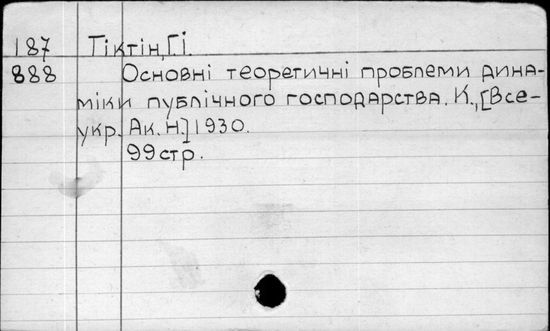 187 Тіктін, Гі.
888 Основні теоретичні проблеми дина-
міки публічного господарства. К., [Все-
укр. Ак. Н.] 1930.
99 стр.